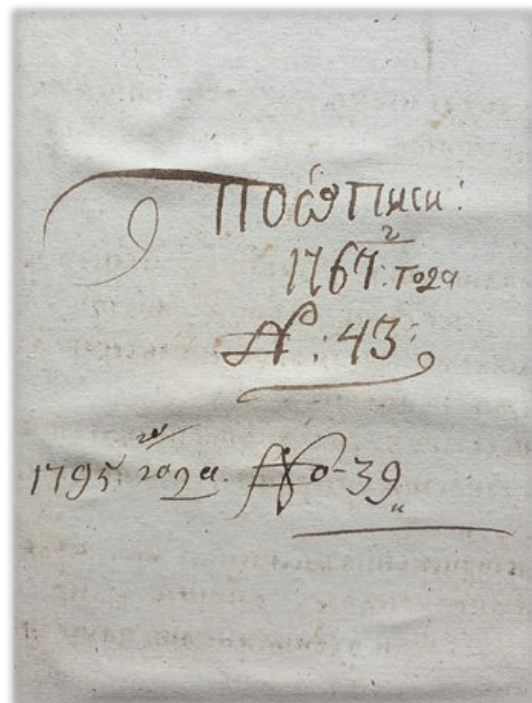 По ѡ́писи:
1767:г года
№: 43:
1795го года. №-39„